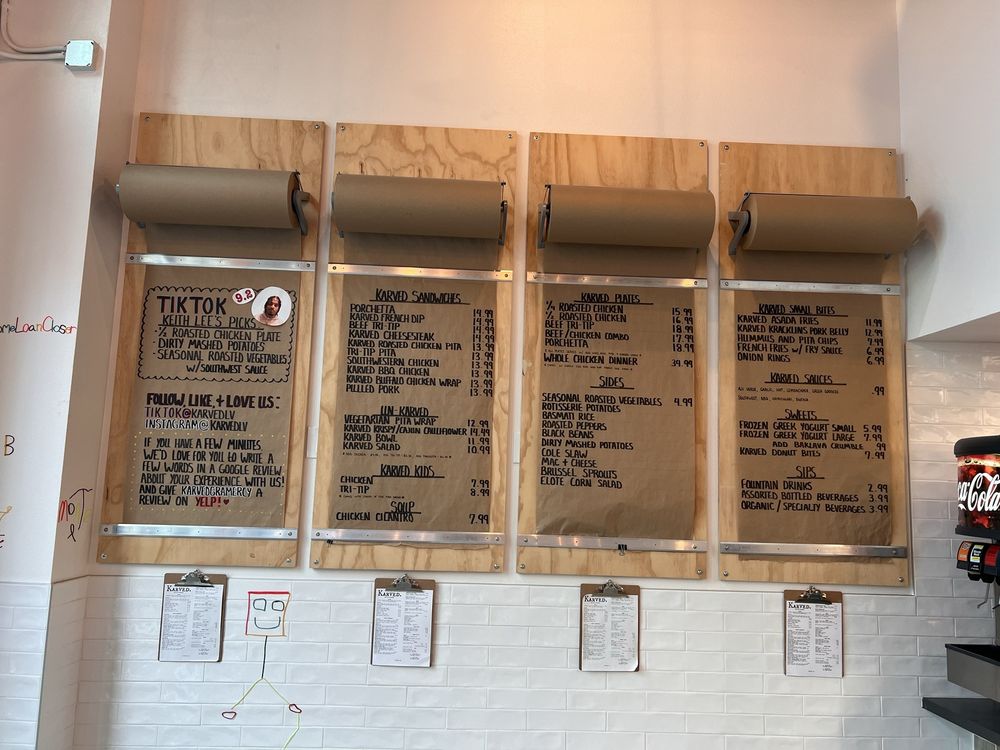 omeLoanCloser
B
E
TIKTOK 9.2
KEITH LEE'S PICKS
- ½ ROASTED CHICKEN PLATE
- DIRTY MASHED POTATOES
- SEASONAL ROASTED VEGETABLES
W/SOUTHWEST SAUCE
FOLLOW, LIKE, + LOVE US:
TIKTOK@KARVEDLV
INSTAGRAM@KARVEDLV
IF YOU HAVE A FEW MINUTES
WE'D LOVE FOR YOU TO WRITE A
FEW WORDS IN A GOOGLE REVIEW
ABOUT YOUR EXPERIENCE WITH US!
AND GIVE KARVEDGRAMERCY A
REVIEW ON YELP!
KARVED SANDWICHES
PORCHETTA 14.99
KARVED FRENCH DIP 14.99
BEEF TRI-TIP 14.99
KARVED CHEESESTEAK 14.99
KARVED ROASTED CHICKEN PITA 13.99
TRI-TIP PITA 13.99
SOUTHWESTERN CHICKEN 13.99
KARVED BBQ CHICKEN 13.99
KARVED BUFFALO CHICKEN WRAP 13.99
PULLED PORK 13.99
UN-KARVED
VEGETARIAN PITA WRAP 12.99
KARVED KRISPY/CAJUN CAULIFLOWER 14.99
KARVED BOWL 11.99
KARVED SALAD 10.99
KARVED KIDS
CHICKEN 7.99
TRI-TIP 8.99
SOUP
CHICKEN CILANTRO 7.99
KARVED PLATES
¼ ROASTED CHICKEN 15.99
½ ROASTED CHICKEN 16.99
BEEF TRI-TIP 18.99
BEEF/CHICKEN COMBO 17.99
PORCHETTA 18.99
WHOLE CHICKEN DINNER 39.99
SIDES
SEASONAL ROASTED VEGETABLES 4.99
ROTISSERIE POTATOES
BASMATI RICE
ROASTED PEPPERS
BLACK BEANS
DIRTY MASHED POTATOES
COLE SLAW
MAC + CHEESE
BRUSSEL SPROUTS
ELOTE CORN SALAD
KARVED SMALL BITES
KARVED ASADA FRIES 11.99
KARVED KRACKLINS PORK BELLY 12.99
HUMMUS AND PITA CHIPS 7.99
FRENCH FRIES W/ FRY SAUCE 6.99
ONION RINGS 6.99
KARVED SAUCES
.99
SWEETS
FROZEN GREEK YOGURT SMALL 5.99
FROZEN GREEK YOGURT LARGE 7.99
ADD BAKLAVA CRUMBLE .99
KARVED DONUT BITES 7.99
SIPS
FOUNTAIN DRINKS 2.99
ASSORTED BOTTLED BEVERAGES 3.99
ORGANIC / SPECIALTY BEVERAGES 3.99
KARVED.
KARVED.
KARVED.
KARVED.
Coca-Cola